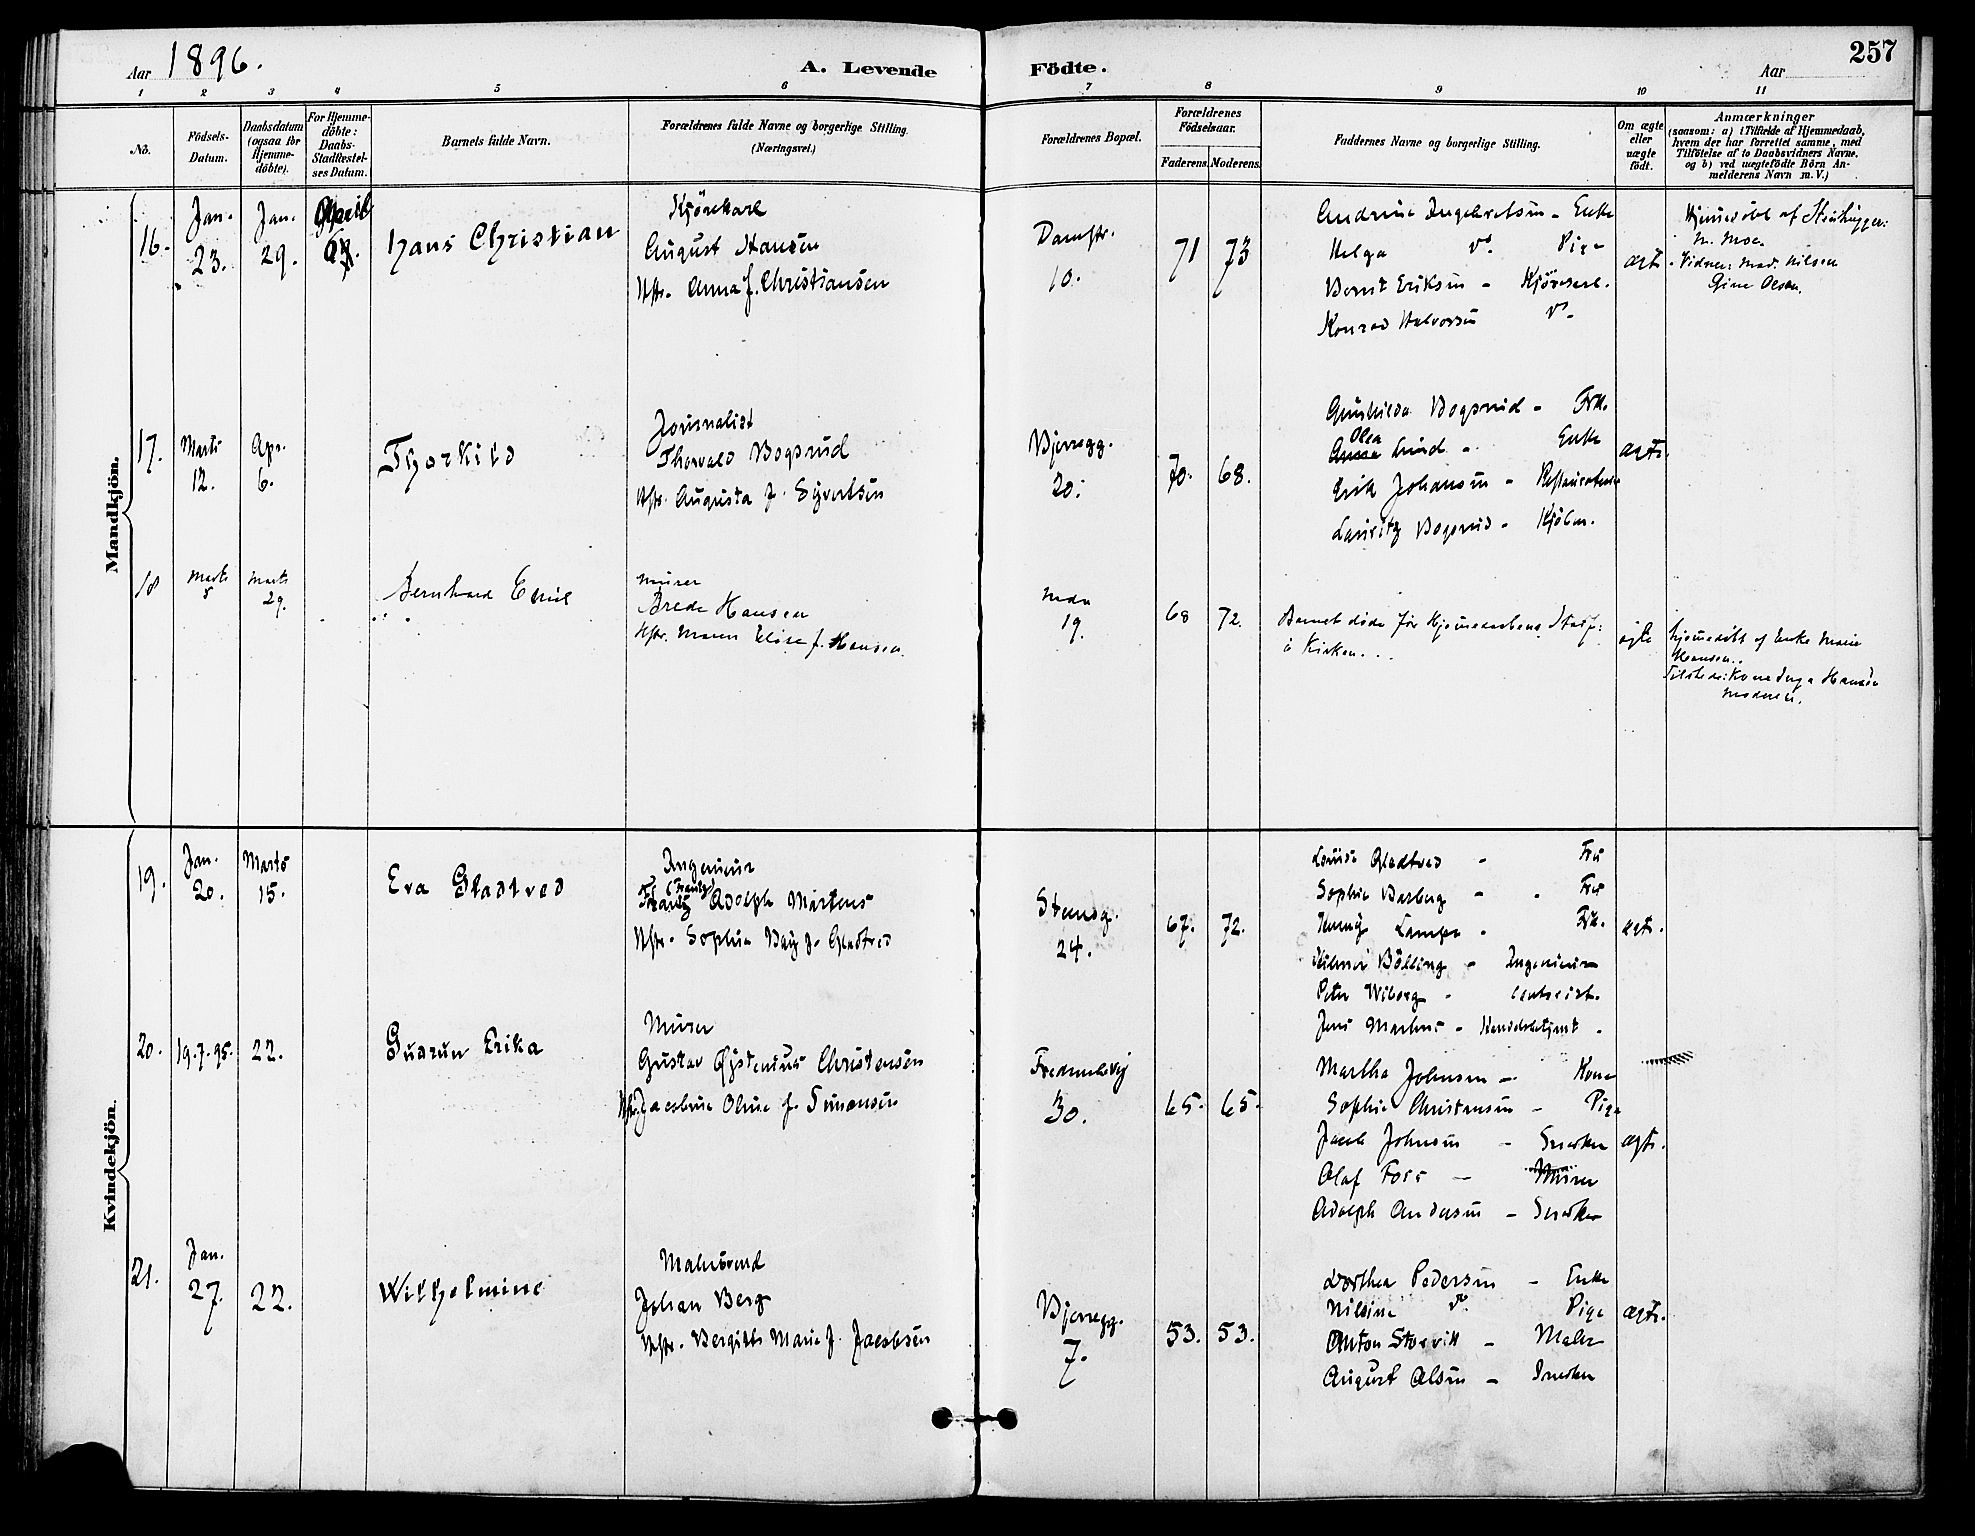 Aar 1896.
A. Levende Födte.
Aar
257
1 2 3 4 5 6 7 8 9 10 11
No.
Födsels-Datum.
Daabsdatum (ogsaa for Hjemme-döbte).
For Hjemme-döbte: Daabs-Stadfæstel-ses Datum.
Barnets fulde Navn.
Forældrenes fulde Navne og borgerlige Stilling. (Næringsvei.)
Forældrenes Bopæl.
Forældrenes Födselsaar.
Faderens. Moderens.
Faddernes Navne og borgerlige Stilling.
Om ægte eller uægte födt.
Anmærkninger (saasom: a) i Tilfælde af Hjemmedaab, hvem der har forrettet samme, med Tilföielse af to Daabsvidners Navne, og b) ved uægtefödte Börn An-melderens Navn m. V.)
Mandkjön.
16.
Jan. 23.
Jan. 29.
April
Hans Christian
Kjörekarl
August Hansen
Hstr. Anna f. Christiansen
Damstr. 10.
71 73
Andrine Ingebretsen - Enke
Helga do. Pige
Bernt Eriksen - Kjörekarl.
Konrad Halvorsen do.
ægte.
Hjemmedöbt af Stenhugger
M. Moe.
Vidner: Mad. Nilsen
Gine Olsen.
17.
Marts 12.
Apr. 6.
Thorkild
Journalist
Thorvald Bogsrud
Hstr. Augusta f. Syvertsen
Bjerregg. 20.
70. 68.
Gunhilda Bogsrud - Frk.
Olea Lund - Enke
Erik Johansen - Restauratør
Lauritz Bogsrud - Kjöbm.
ægte.
18
Marts 5
Marts 29.
Bernhard Emil
Murer
Brede Hansen
Hstr. Maren Elise f. Hansen.
19.
68 72.
Barnet döde før Hjemmedaabens Stadf:
i Kirken...
ægte
hjemmedöbt af Enke Marie
Hansen..
Tilstede: Kone Inga Hansen
Moderen.
Kvindekjön.
19.
Jan. 20.
Marts 15.
Eva Gladtved
Ingeniør
(Frantz)
Frantz Adolph Martens
Hstr. Sophie Bay f. Gladtved
Stensg. 24.
67. 72.
Louise Gladtved - Fru
Sophie Barberg - Fru
Lampe - Frk.
Hilmar Bölling - Ingeniør
Peter Wiborg -
Jens Martens - Handelsbetjent.
ægte.
20.
19.7.95.
22.
Gudrun Erika
Murer
Gustav Øistenius Christensen
Hstr. Jacobine Oline f. Simensen
Fredensborgvej 30.
65. 65.
Martha Johnsen - Kone
Sophie Christensen - Pige
Jacob Johnsen - Snedker
Olaf Foss - Murer
Adolph Andersen - Snedker
ægte.
21.
Jan. 27.
22.
Wilhelmine
Malersvend
Johan Berg
Hstr. Bergitte Marie f. Jacobsen
Bjerregg. 7.
53. 53.
Dorthea Pedersen - Enke
Nilsine do. Pige
Anton Storvik - Maler
August Olsen - Snedker
ægte.